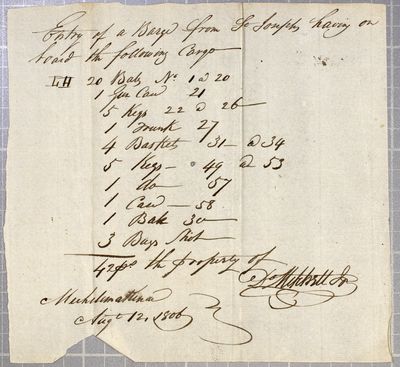 Entry of a Barge from St Josephs having on
board the following Cargo
LH 20 Bales No 1 a 20
1 Gun Case 21
5 Kegs 22 a 26
1 Trunk 27
4 Baskets 31 a 34
5 Kegs 49 a 53
1 do 57
1 Case 58
1 Bale 30
3 Bags Shot
42 ps the property of
D Mitchell Jr
Michilimackinac
Augt 12, 1806